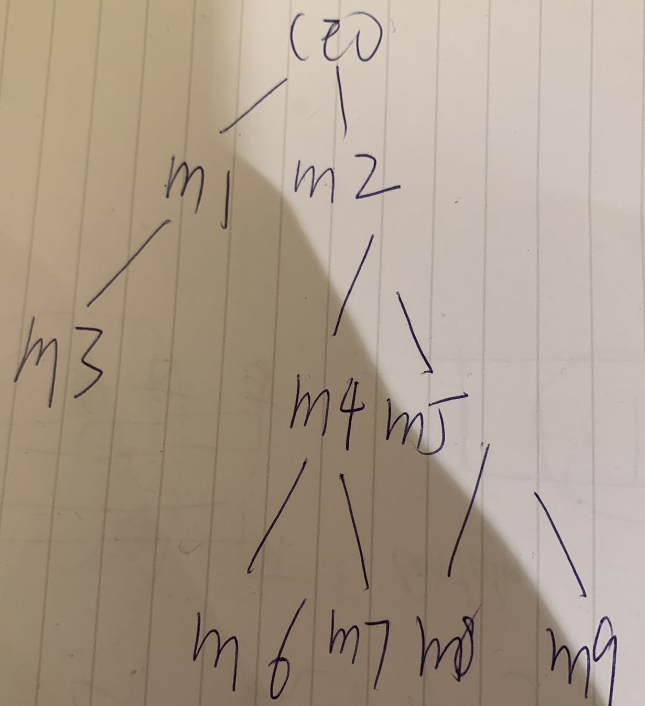 CEO
m1 m2
m3
m4 m5
m6 m7 m8 m9